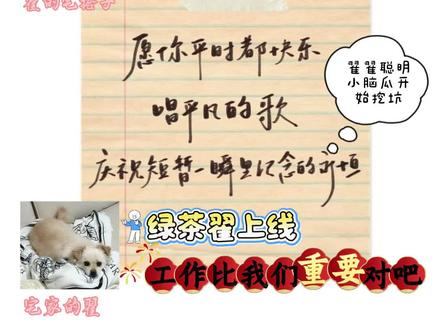 翟的宅搭子
愿你平时都快乐
唱平凡的歌
庆祝短暂一瞬里纪念的永恒
翟翟聪明
小脑瓜开
始挖坑
绿茶翟上线
工作比我们重要对吧
宅家的翟